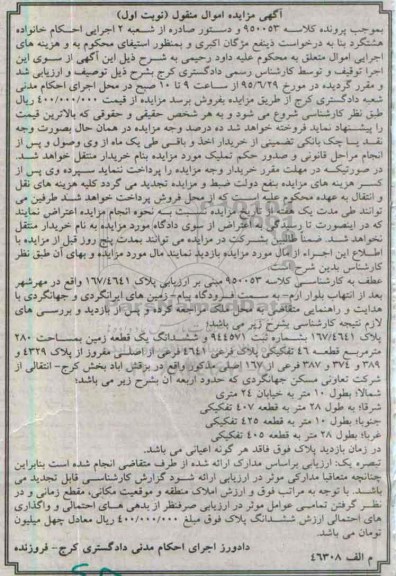 آگهی مزایده اموال منقول (نوبت اول)
بموجب پرونده کلاسه ۹۵۰۰۵۳ و دستور صادره از شعبه ۲ اجرایی احکام خانواده
هشتگرد بنا به درخواست ذینفع مژگان اکبری و بمنظور استیفای محکوم به و هزینه های
اجرایی اموال متعلق به محکوم علیه داود رحیمی به شرح ذیل این آگهی از سوی این
اجرا توقیف و توسط کارشناس رسمی دادگستری کرج بشرح ذیل توصیف و ارزیابی شد
و مقرر گردیده در مورخ ۹۵/۶/۲۹ از ساعت ۹ تا ۱۰ صبح در محل اجرای احکام مدنی
شعبه دادگستری کرج از طریق مزایده بفروش برسد مزایده از قیمت ۴۰۰/۰۰۰/۰۰۰ ریال
طبق نظر کارشناسی شروع می شود و به هر شخص حقیقی و حقوقی که بالاترین قیمت
را پیشنهاد نماید فروخته خواهد شد ده درصد وجه مزایده در همان حال بصورت وجه
نقد یا چک بانکی تضمینی از خریدار اخذ و باقی طی یک ماه از وی وصول و پس از
انجام مراحل قانونی و صدور حکم تملیک مورد مزایده بنام خریدار منتقل خواهد شد.
در صورتیکه در مهلت مقرر خریدار وجه مزایده را پرداخت ننماید سپرده وی پس از
کسر هزینه های مزایده بنفع دولت ضبط و مزایده تجدید می گردد کلیه هزینه های نقل
و انتقال به عهده محکوم علیه است که از محل فروش پرداخت خواهد شد طرفین می
توانند طی مدت یک هفته از تاریخ مزایده نسبت به نحوه انجام مزایده اعتراض نمایند
که در اینصورت تا رسیدگی به اعتراض از سوی دادگاه مورد مزایده به نام خریدار منتقل
نخواهد شد. ضمناً طالبین شرکت در مزایده می توانند بمدت پنج روز قبل از مزایده با
اطلاع این اجراء از مال مورد مزایده بازدید نمایند مال مورد مزایده و بهای آن طبق نظر
کارشناس بدین شرح است.
عطف به کارشناسی کلاسه ۹۵۰۰۵۳ مبنی بر ارزیابی پلاک ۱۶۷/۴۶۴۱ واقع در مهرشهر
بعد از انتهاب بلوار ارم- به سمت فرودگاه پیام- زمین های ایرانگردی و جهانگردی با
هدایت و راهنمایی متقاضی به محل ملک مراجعه گرده و پس از بازدید و بررسی های
لازم نتیجه کارشناسی بشرح زیر می باشد:
پلاک ۱۶۷/۴۶۴۱ بشماره ثبت ۹۴۴۵۷۱ و ششدانگ یک قطعه زمین بمساحت ۲۸۰
مترمربع قطعه ۴۶ تفکیکی پلاک فرعی ۴۶۴۱ فرعی از اصلی مفروز از پلاک ۴۳۲۹ و
۳۸۹ و ۳۷۴ و ۳۸۷ فرعی از ۱۶۷ اصلی مذکور واقع در بزقش اباد بخش کرج- انتقالی از
شرکت تعاونی مسکن جهانگردی که حدود اربعه آن بشرح زیر می باشد؛
شمالا: بطول ۱۰ متر به خیابان ۲۴ متری
شرقا: به طول ۲۸ متر به قطعه ۴۰۷ تفکیکی
جنوبا: بطول ۱۰ متر به قطعه ۴۲۵ تفکیکی
غربا: بطول ۲۸ متر به قطعه ۴۰۵ تفکیکی
در زمان بازدید پلاک فوق فاقد هر گونه اعیانی می باشد.
تبصره یک: ارزیابی براساس مدارک ارائه شده از طرف متقاضی انجام شده است بنابراین
چنانچه متعاقبا مدارکی موثر در ارزیابی ارائه شود گزارش کارشناسی قابل تجدید می
باشد. با توجه به مراتب فوق و ارزش املاک منطقه و موقعیت مکانی، مقطع زمانی و در
نظر گرفتن تمامی عوامل موثر در ارزیابی صرفنظر از بدهی های احتمالی و واگذاری
های احتمالی ارزش ششدانگ پلاک فوق مبلغ ۴۰۰/۰۰۰/۰۰۰ ریال معادل چهل میلیون
تومان می باشد.
دادورز اجرای احکام مدنی دادگستری کرج- فروزنده
م الف ۴۶۳۰۸